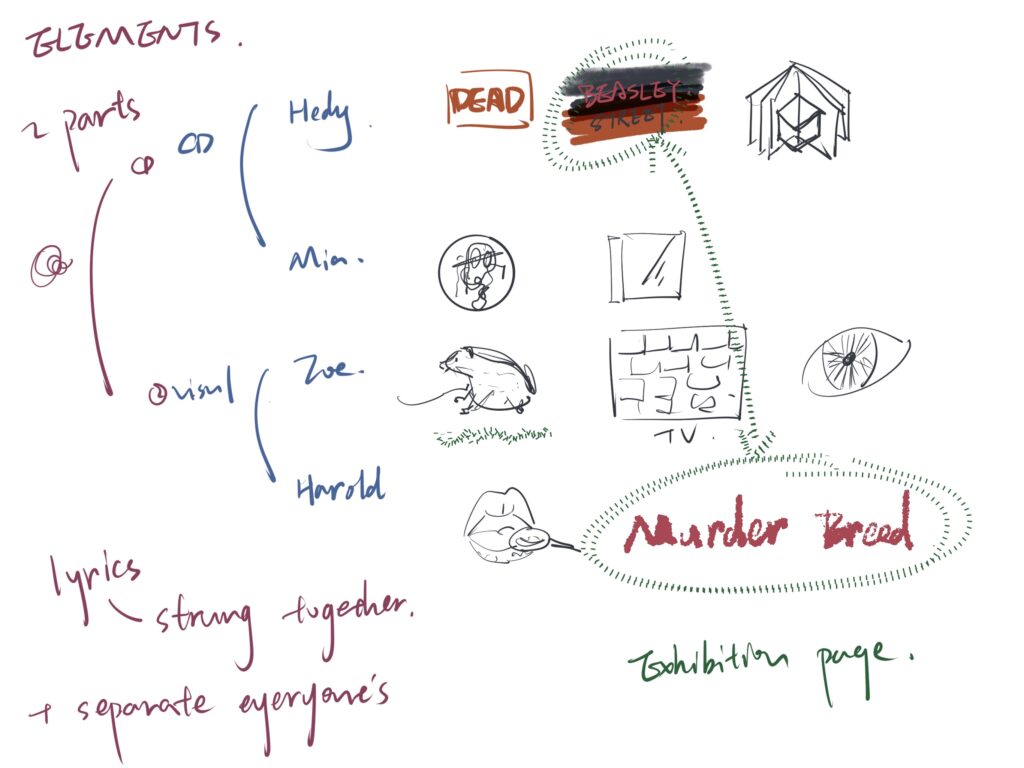 ELEMENTS.
2 parts
CD
Hedy.
Mia.
② visul
Zoe.
Harold
DEAD
BEASLEY
STREET
TV.
Murder Breed
Exhibition page.
lyrics
strung together.
+ separate everyone's